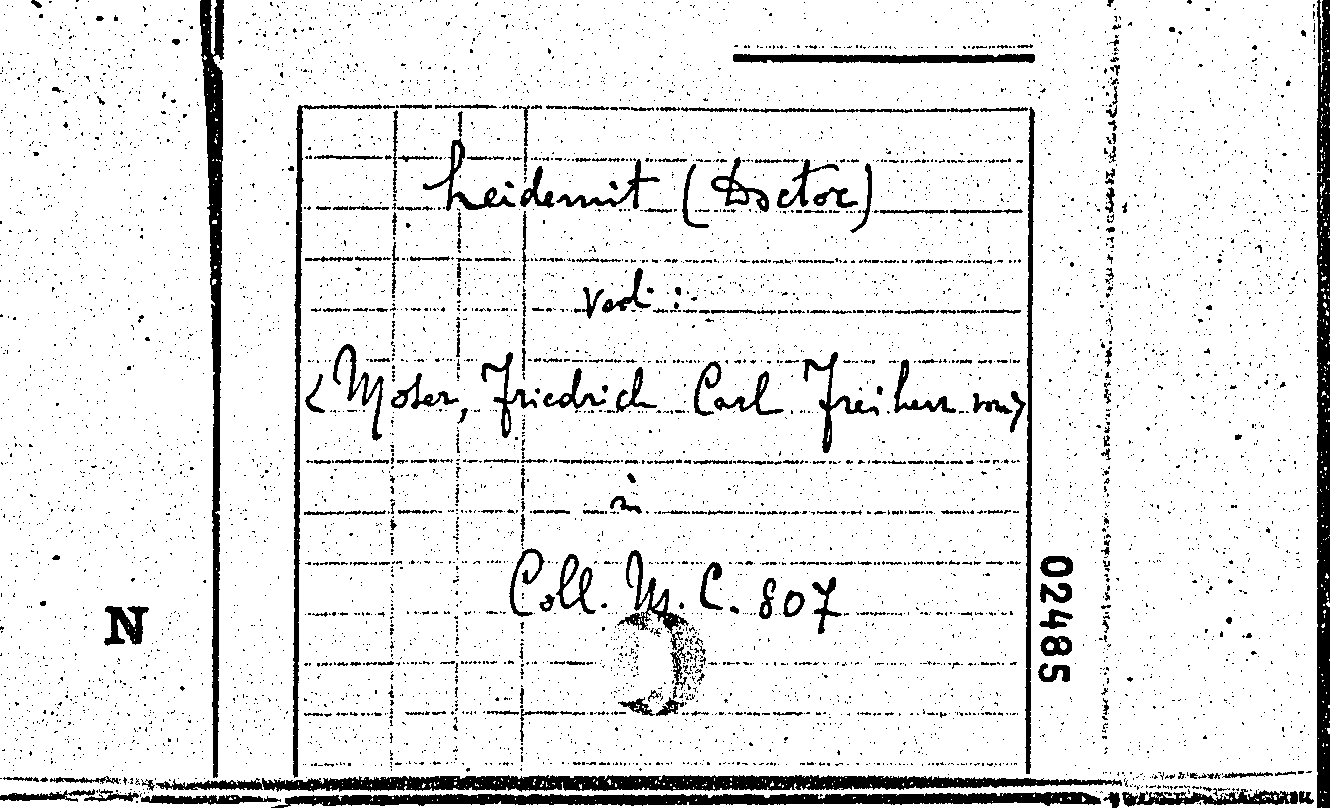 Leidemit (Doctor)
vedi:
<Moser, Friedrich Carl Freiherr von>
in
Coll. M. C. 807
N
02485